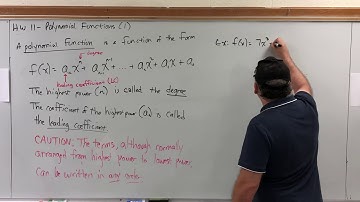 HW 11 - Polynomial Functions (1)
A polynomial Function is a function of the form
degree
f(x) = aₙxⁿ + aₙ₋₁xⁿ⁻¹ + ... + a₂x² + a₁x + a₀
leading coefficient (LC)
The highest power (n) is called the degree
The coefficient of the highest power (aₙ) is called
the leading coefficient
CAUTION: The terms, although normally
arranged from highest power to lowest power
can be written in any order
Ex: f(x) = 7x